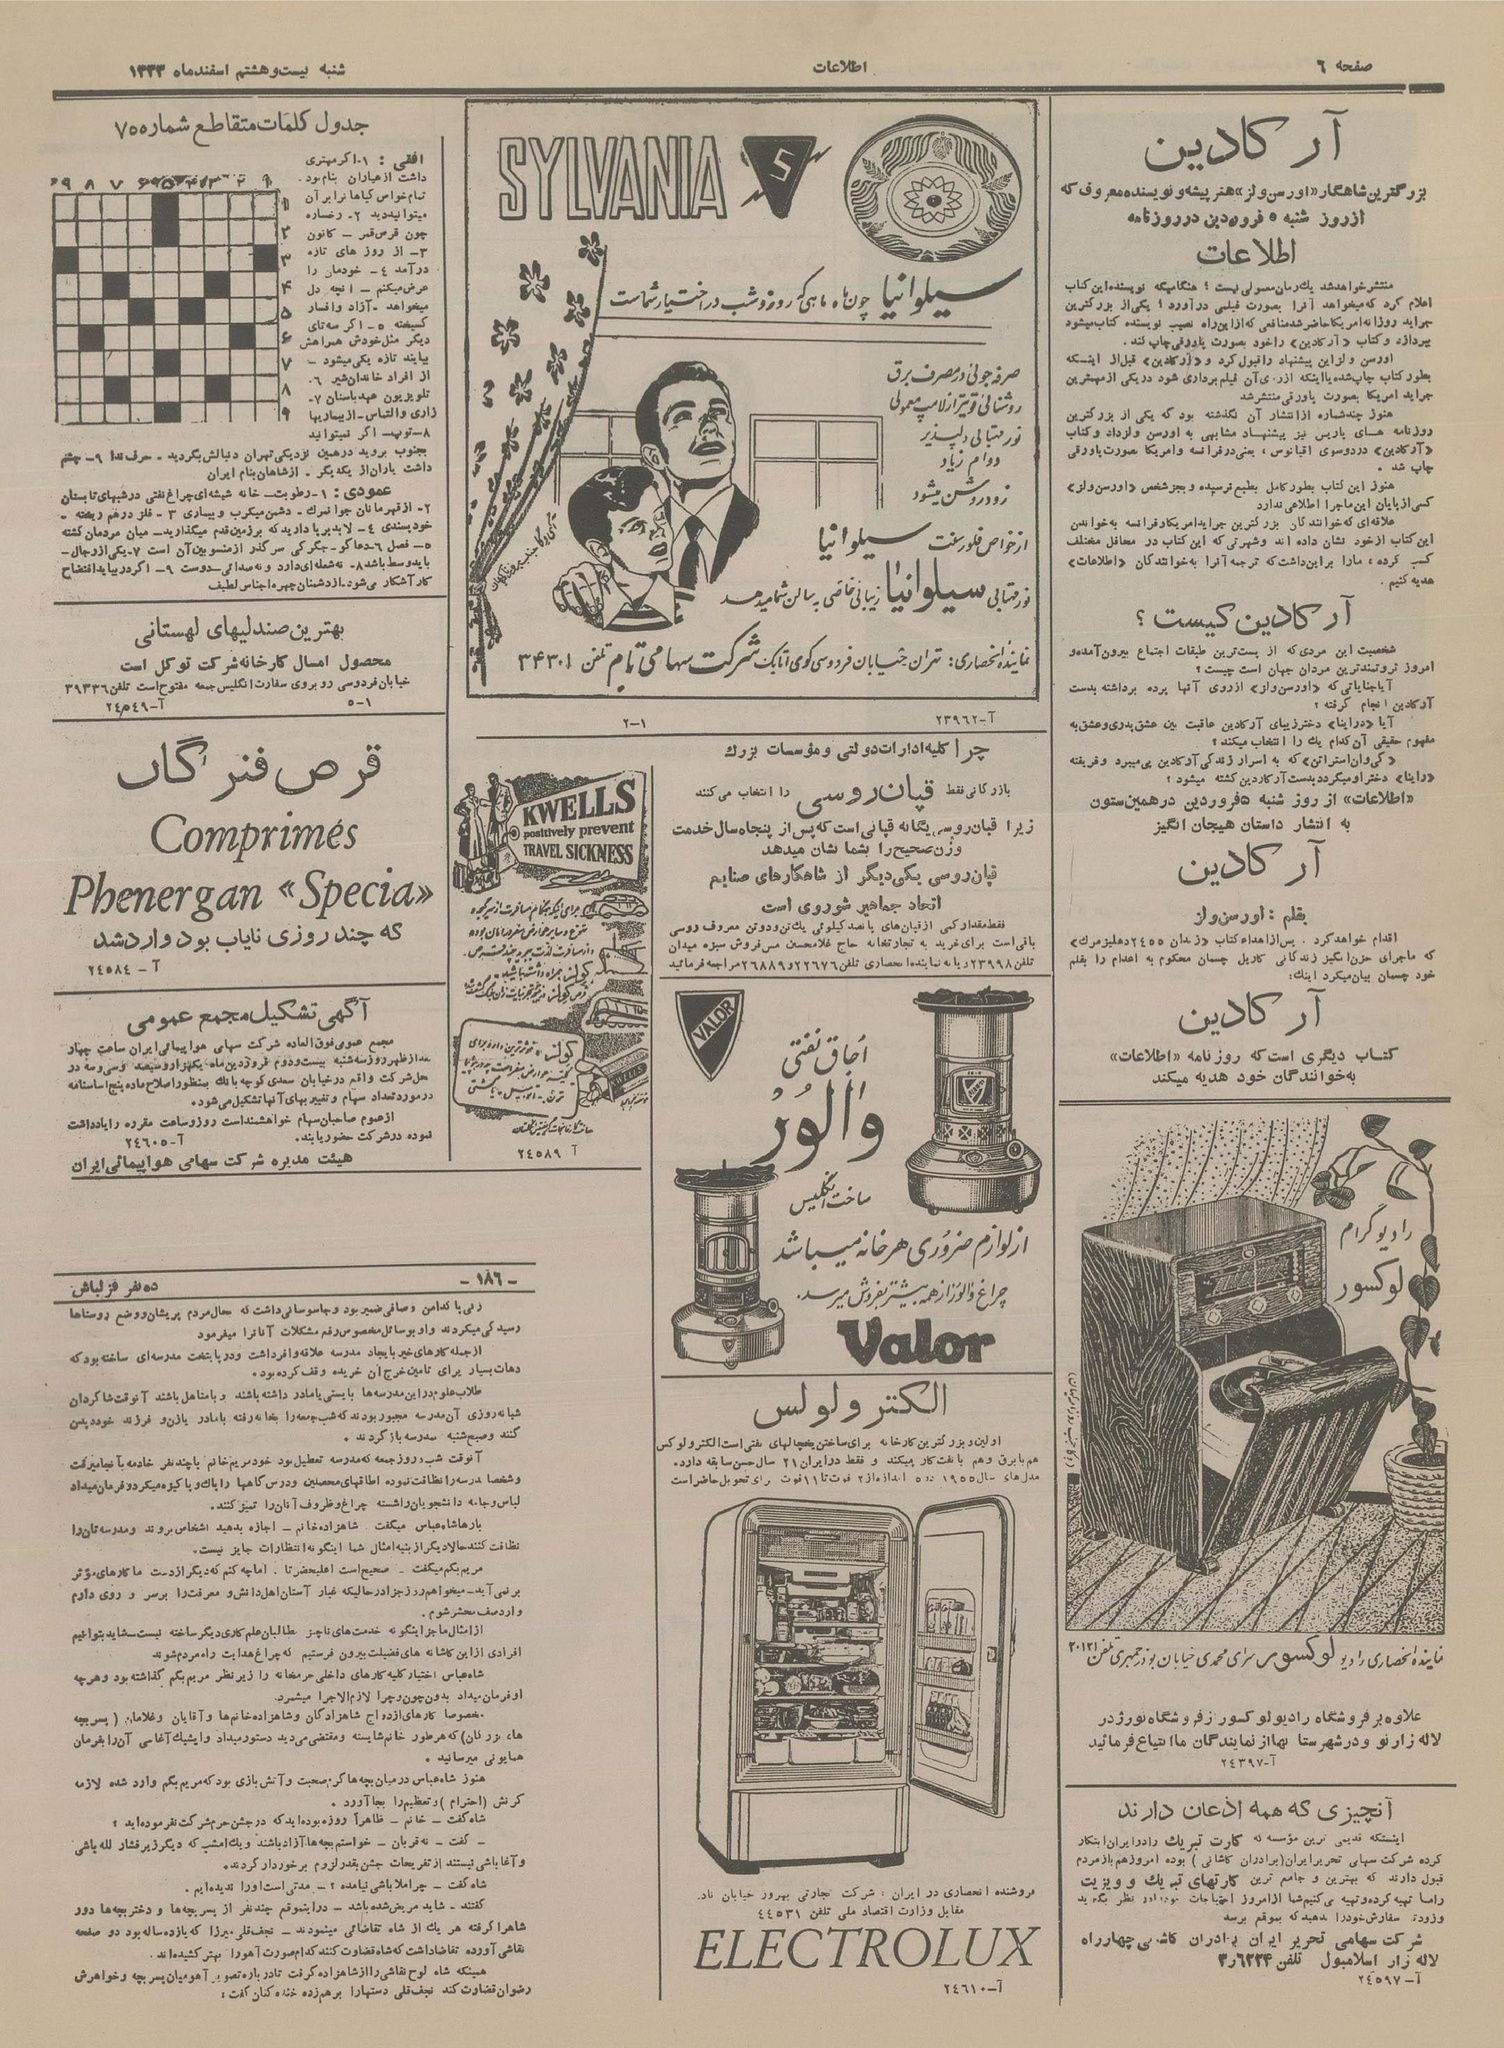 صفحه ٦
اطلاعات
شنبه بیست و هشتم اسفندماه ۱۳۳۳
آرکادین
بزرگترین شاهکار «اورسن ولز» هنرپیشه و نویسنده معروف که
از روز شنبه ۵ فروردین در روزنامه
اطلاعات
منتشر خواهد شد یک رمان معمولی نیست ؛ هنگامیکه نویسنده این کتاب
اعلام کرد که میخواهد آنرا بصورت فیلمی درآورد ؛ یکی از بزرگترین
جراید روزانه امریکا حاضر شد منافعی که از این راه نصیب نویسنده کتاب میشود
بپردازد و کتاب «آرکادین» را خود بصورت پاورقی چاپ کند .
اورسن ولز این پیشنهاد را قبول کرد و «آرکادین» قبل از اینکه
بطور کتاب چاپ شده یا اینکه از روی آن فیلم برداری شود در یکی از مهمترین
جراید امریکا بصورت پاورقی منتشر شد
هنوز چند شماره از انتشار آن نگذشته بود که یکی از بزرگترین
روزنامه های پاریس نیز پیشنهاد مشابهی به اورسن ولز داد و کتاب
«آرکادین» در دو سوی اقیانوس ، یعنی در فرانسه و امریکا بصورت پاورقی
چاپ شد .
هنوز این کتاب بطور کامل بطبع نرسیده و بجز شخص «اورسن ولز»
کسی از پایان این ماجرا اطلاعی ندارد
علاقه ای که خوانندگان بزرگترین جراید امریکا و فرانسه به خواندن
این کتاب از خود نشان داده اند و شهرتی که این کتاب در محافل مختلف
کسب کرده ، مارا بر این داشت که ترجمه آنرا به خوانندگان «اطلاعات»
هدیه کنیم .
آرکادین کیست ؟
شخصیت این مردی که از پست ترین طبقات اجتماع بیرون آمده و
امروز ثروتمندترین مردان جهان است چیست ؟
آیا جنایاتی که «اورسن ولز» از روی آنها پرده برداشته بدست
آرکادین انجام گرفته ؟
آیا «دراینا» دختر زیبای آرکادین عاقبت بین عشق پدری و عشق به
مفهوم حقیقی آن کدام یک را انتخاب میکند ؟
«کی وان استراتن» که به اسرار زندگی آرکادین پی میبرد و فریفته
«راینا» دختر او میگردد بدست آرکادین کشته میشود ؟
«اطلاعات» از روز شنبه ۵ فروردین در همین ستون
به انتشار داستان هیجان انگیز
آرکادین
بقلم : اورسن ولز
اقدام خواهد کرد . پس از اهداء کتاب «زندان ۲۴۵۵ دهلیز مرگ»
که ماجرای حزن انگیز زندگانی کاریل چسمان محکوم به اعدام را بقلم
خود چسمان بیان میکرد اینک :
آرکادین
کتاب دیگری است که روزنامه «اطلاعات»
به خوانندگان خود هدیه میکند
رادیوگرام
لوکسور
نماینده انحصاری رادیو لوکسور سرای محمدی خیابان بوذرجمهری تلفن ۲۰۱۲۱
علاوه بر فروشگاه رادیو لوکسور از فروشگاه نوروز در
لاله زار نو و در شهرستانها از نمایندگان ما ابتیاع فرمائید
آ-۲٤۳۹۷
آنچیزی که همه اذعان دارند
اینستکه قدیمی ترین مؤسسه که کارت تبریک را در ایران ابتکار
کرده شرکت سهامی تحریر ایران (برادران کاشانی) بوده امروز هم باز مردم
قبول دارند که بهترین و جامع ترین کارتهای تبریک و ویزیت
را ما تهیه کرده و تهیه می کنیم شما از امروز احتیاجات خود را در نظر بگیرید
و زودتر سفارش خود را بدهید که بموقع برسد
شرکت سهامی تحریر ایران برادران کاشانی چهارراه
لاله زار اسلامبول تلفن ۳٫٦۲۲۴
آ-۲٤٥۹۷
SYLVANIA
S
سیلوانیا چون ماه ماهی که روز و شب در اختیار شماست
صرفه جوئی در مصرف برق
روشنائی قوی تر از لامپ معمولی
نور مهتابی دلپذیر
دوام زیاد
زود روشن میشود
از خواص فلورسنت سیلوانیا
نور مهتابی سیلوانیا زیبائی خاصی به سالن شما میدهد
نماینده انحصاری: تهران خیابان فردوسی کوی اتابک شرکت سهامی تام تلفن ۳۴۳۰۱
آ-۲۳۹٦۲
۲-۱
چرا کلیه ادارات دولتی و مؤسسات بزرگ
بازرگانی فقط قپان روسی را انتخاب می کنند
زیرا قپان روسی یگانه قپانی است که پس از پنجاه سال خدمت
وزن صحیح را بشما نشان میدهد
قپان روسی یکی دیگر از شاهکارهای صنایع
اتحاد جماهیر شوروی است
فقط مقدار کمی از قپان های پانصد کیلوئی یک تن و دو تن معروف روسی
باقی است برای خرید به تجارتخانه حاج غلامحسین مس فروش سبزه میدان
تلفن ۲۳۹۹۸ و یا به نماینده انحصاری تلفن ۲۲٦۷٦ و ۲٦۸۸۹ مراجعه فرمائید
KWELLS
positively prevent
TRAVEL SICKNESS
برای اینکه هنگام مسافرت از سرگیجه
KWELLS
آ ۲٤٥۸۹
VALOR
اجاق نفتی
والور
ساخت انگلیس
از لوازم ضروری هر خانه میباشد
چراغ والور از همه بیشتر بفروش میرسد.
Valor
الکترولوکس
اولین و بزرگترین کارخانه برای ساختن یخچالهای نفتی است الکترولوکس
هم با برق و هم با نفت کار میکند و فقط در ایران ۲۱ سال حسن سابقه دارد.
مدل های سال ۱۹۵۵ در ۵ اندازه از ۲ فوت تا ۱۱ فوت برای تحویل حاضر است
فروشنده انحصاری در ایران : شرکت تجارتی بهروز خیابان ناد.
مقابل وزارت اقتصاد ملی تلفن ٤٤٥۳۱
ELECTROLUX
آ-۲٤٦۱۰
جدول کلمات متقاطع شماره ۷۰۰
افقی : ۱-اگر مهتری
داشت از عیاران بنام بود.
تمام خواص گیاهها را بر آن
میتوانید دید ۲- رخساره
چون قرص قمر – کانون
۳- از روز های تازه
درآمد ٤- خودمان را
عرض میکنم – آنچه دل
میخواهد – آزاد و افسار
گسیخته ۵- اگر سه تای
دیگر مثل خودش همراهش
بیایند تازه یکی میشود –
از افراد خاندان شیر ٦-
تلویزیون عهد باستان ۷-
زاری و التماس – از بیماریها
۸-توپ- اگر نمیتوانید
بجنوب بروید در همین نزدیکی تهران دنبالش بگردید – حرف ندا ۹- چشم
داشت یاران از یکدیگر – از شاهان بنام ایران
عمودی : ۱-رطوبت- خانه شیشه ای چراغ نفتی در شبهای تابستان
۲- از قهرمانان جوانمرگ – دشمن میکرب و بیماری ۳- فلز درهم ریخته –
خودپسندی ٤- لابد بر پا دارید که بر زمین قدم میگذارید – میان مردمان کشته
۵- فصل ٦- دعاگو- جگرکی سر گذر از منسوبین آن است ۷- یکی از رجال-
باید وسط باشد ۸- نه شعله ای دارد و نه صدائی – دوست ۹- اگر در بیاید افتضاح
کار آشکار می شود- از دشمنان چهره اجناس لطیف
بهترین صندلیهای لهستانی
محصول امسال کارخانه شرکت توکل است
خیابان فردوسی روبروی سفارت انگلیس جمعه مفتوح است تلفن ۳۹۳۳٦
۵-۱
آ-۲٤٥٤۹
قرص فنرگان
Comprimés
Phenergan «Specia»
که چند روزی نایاب بود وارد شد
آ – ۲٤٥۸٤
آگهی تشکیل مجمع عمومی
مجمع عمومی فوق العاده شرکت سهامی هواپیمائی ایران ساعت چهار
بعد از ظهر روز سه شنبه بیست و دوم فروردین ماه یکهزار و سیصد و سی و سه در
محل شرکت واقع در خیابان سعدی کوچه بانک بمنظور اصلاح ماده پنج اساسنامه
در مورد تعداد سهام و تغییر بهای آنها تشکیل می شود.
از عموم صاحبان سهام خواهشمند است روز و ساعت مقرره را یادداشت
نموده در شرکت حضور یابند. آ-۲٤٦۰۵
هیئت مدیره شرکت سهامی هواپیمائی ایران
-۱۸٦-
ده نفر قزلباش
زنی پاکدامن و صافی ضمیر بود و جاسوسانی داشت که حال مردم پریشان و وضع روستاها
رسیدگی میکردند و او بوسائل مخصوص رفع مشکلات آنانرا میفرمود
از جمله کارهای خیر با ایجاد مدرسه علاقه وافر داشت و در پایتخت مدرسه ای ساخته بود که
دهات بسیار برای تامین خرج آن خریده وقف کرده بود.
طلاب علوم در این مدرسه ها بایستی یا مادر داشته باشند و یا متاهل باشند آنوقت شاگردان
شبانه روزی آن مدرسه مجبور بودند که شب جمعه را بخانه رفته با مادر یا زن و فرزند خود دیدن
کنند و صبح شنبه بمدرسه باز گردند .
آنوقت شب و روز جمعه که مدرسه تعطیل بود خود مریم خانم با چند نفر خادمه بآنجا میرفت
و شخصا مدرسه را نظافت نموده اطاقهای محصلین و درس گاهها را پاک و پاکیزه میکرد و فرمان میداد
لباس و جامه دانشجویان را شسته چراغ و ظروف آنان را تمیز کنند.
بارها شاه عباس میگفت شاهزاده خانم – اجازه بدهید اشخاص بروند و مدرسه تان را
نظافت کنند حالا دیگر از بنیه امثال شما اینگونه انتظارات جایز نیست.
مریم بگم میگفت – صحیح است اعلیحضرتا . اما چه کنم که دیگر از دست ما کارهای مؤثر
بر نمی آید – میخواهم روز جزا در حالیکه غبار آستان اهل دانش و معرفت را بر سر و روی دارم
وارد صف محشر شوم .
از امثال ما جز اینگونه خدمت های ناچیز بطالبان علم کاری دیگر ساخته نیست – شاید بتوانیم
افرادی از این کاشانه های فضیلت بیرون فرستیم که چراغ هدایت راه مردم شوند
شاه عباس اختیار کلیه کارهای داخلی حرمخانه را زیر نظر مریم بگم گذاشته بود و هر چه
او فرمان میداد بدون چون و چرا لازم الاجرا میشمرد.
مخصوصا کارهای ازدواج شاهزادگان و شاهزاده خانم ها و آقایان و غلامان ( پسر بچه
های بزرگان) که هر طور خانم شایسته و مقتضی می دید دستور میداد و ایشیک آغاسی آن را بفرمان
همایونی میرسانید .
هنوز شاه عباس در میان بچه ها گرم صحبت و آتش بازی بود که مریم بگم وارد شده لازمه
کرنش (احترام ) و تعظیم را بجا آورد .
شاه گفت – خانم – ظاهراً روزه بوده اید که در جشن حرم شرکت نفرموده اید ؟
– گفت – نه قربان – خواستم بچه ها آزاد باشند و یک امشب که دیگر زیر فشار لله باشی
و آغا باشی نیستند از تفریحات جشن بقدر لزوم برخوردار گردند.
شاه گفت – چرا ملا باشی نیامده ؟ – مدتی است او را ندیده ایم .
گفتند – شاید مریض شده باشد – در اینموقع چند نفر از پسر بچه ها و دختر بچه ها دور
شاه را گرفته هر یک از شاه تقاضائی مینمودند – نجف قلی میرزا که یازده ساله بود دو صفحه
نقاشی آورده تقاضا داشت که شاه قضاوت کنند کدام صورت آهو را بهتر کشیده اند .
همینکه شاه لوح نقاشی را از شاهزاده گرفت تا در باره تصویر آهو میان پسر بچه و خواهرش
رضوان قضاوت کند نجف قلی دستها را بر هم زده خنده کنان گفت :